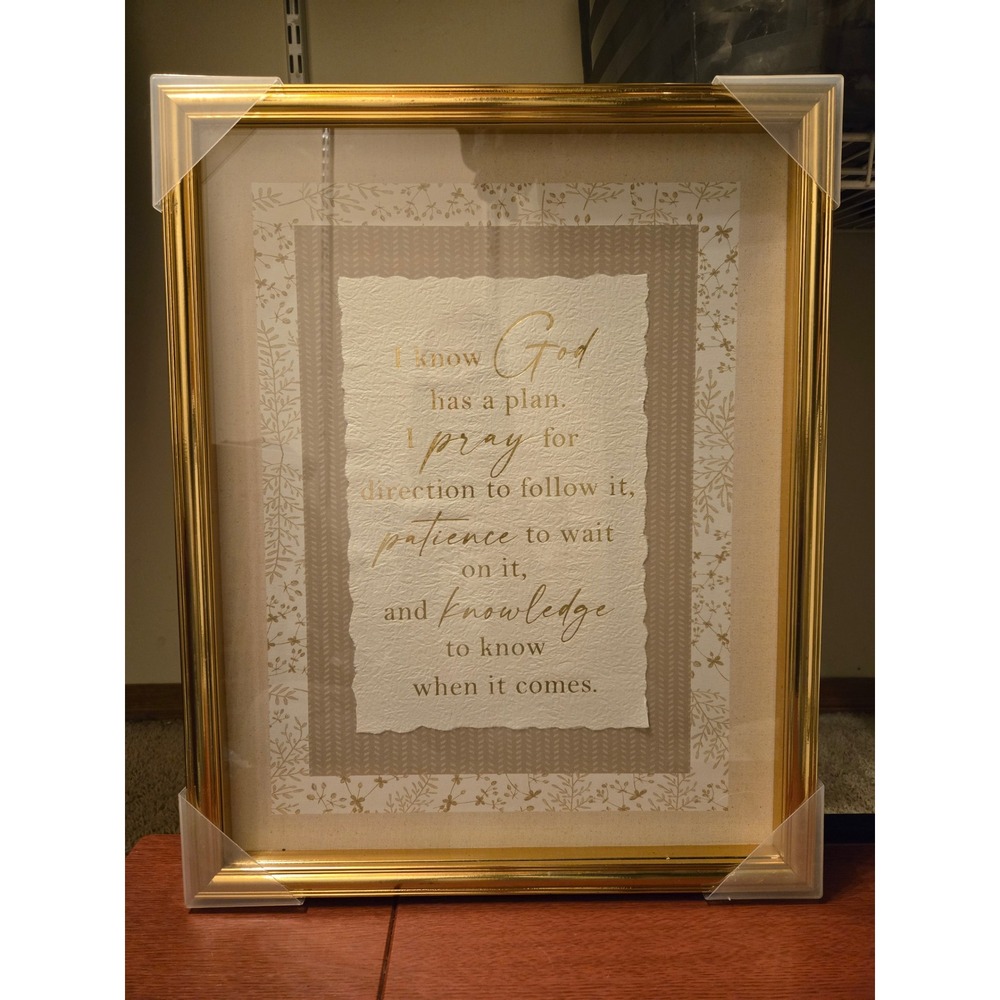 I know God
has a plan.
I pray for
direction to follow it,
patience to wait
on it,
and knowledge
to know
when it comes.